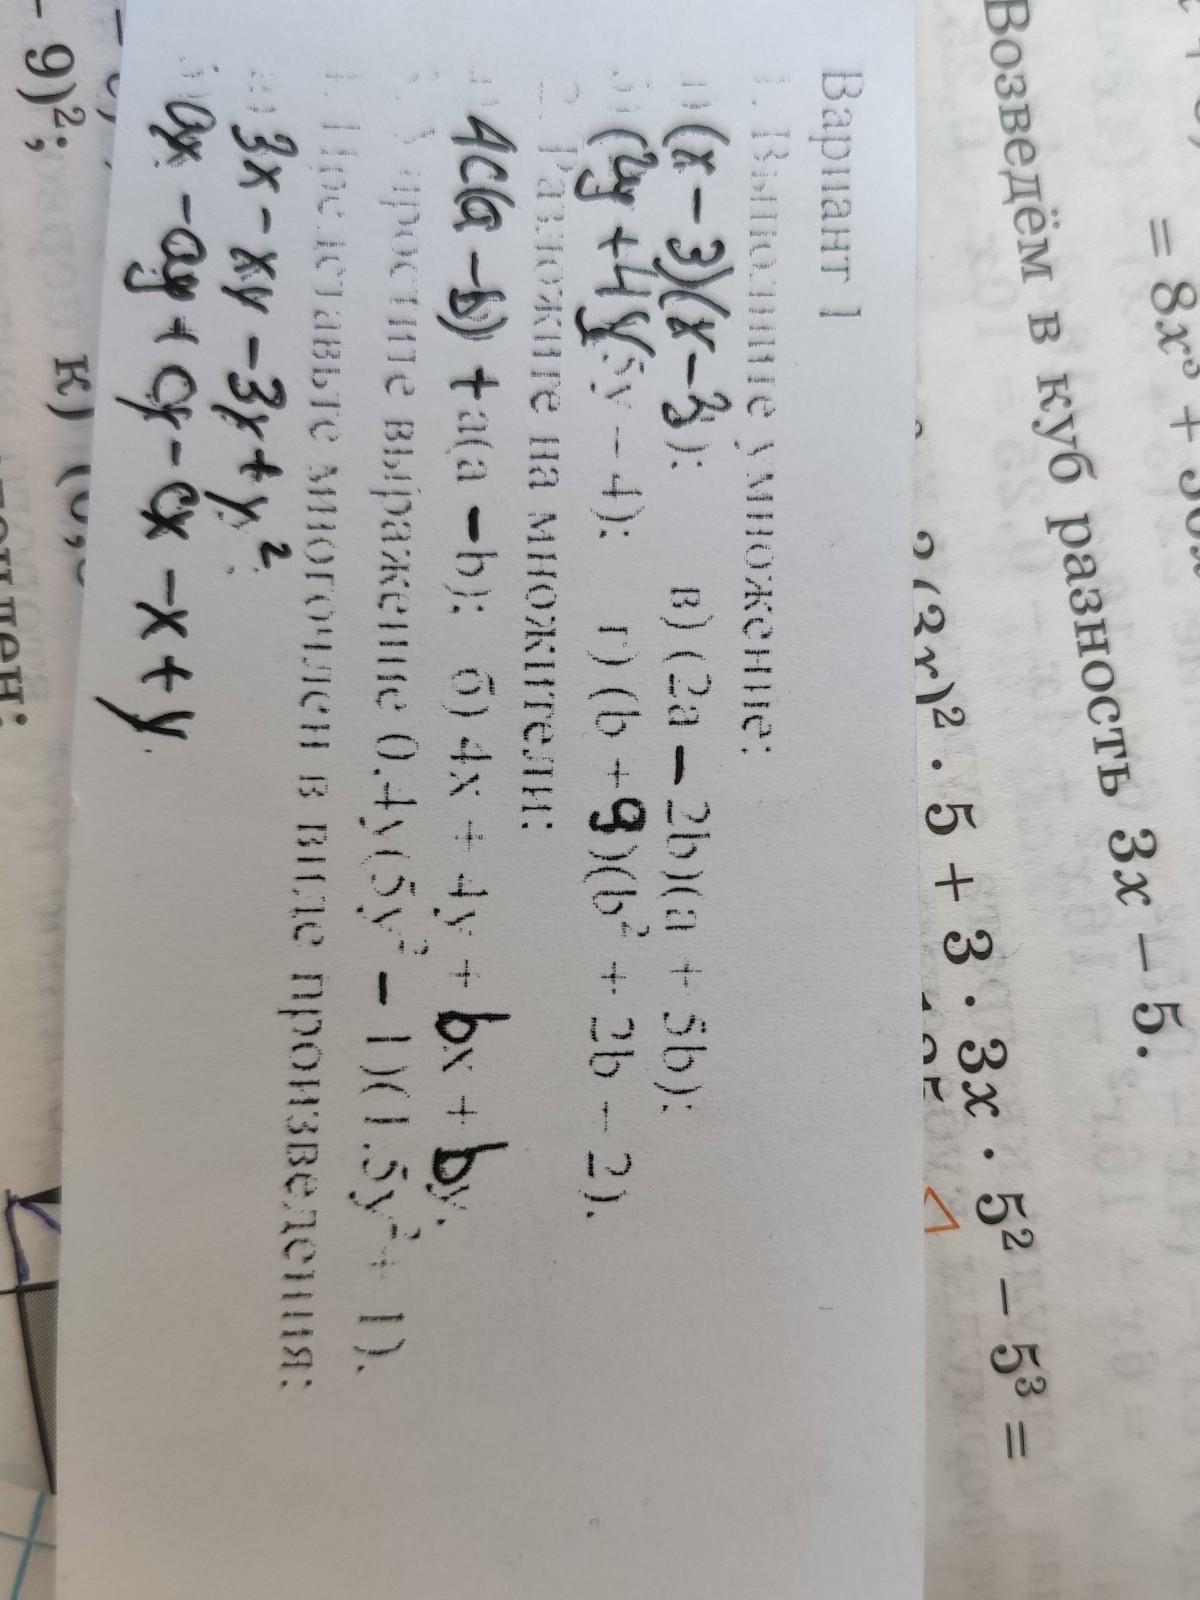 = 8x³ +
Возведём в куб разность 3x − 5.
² · 5 + 3 · 3x · 5² − 5³ =
Вариант 1
1. Выполните умножение:
(x − 3)(x − 3); в) (2a − 2b)(a + 5b);
(2y + 4y)(5y − 4); г) (b + 9)(b² + 2b − 2).
2. Разложите на множители:
4c(a − b) + a(a − b); б) 4x + 4y + bx + by.
3. Упростите выражение 0.4y(5y² − 1)(1.5y² + 1).
4. Представьте многочлен в виде произведения:
3x − xy − 3y + y²;
ax − ay + cy − cx − x + y.
− 9)²;
к)